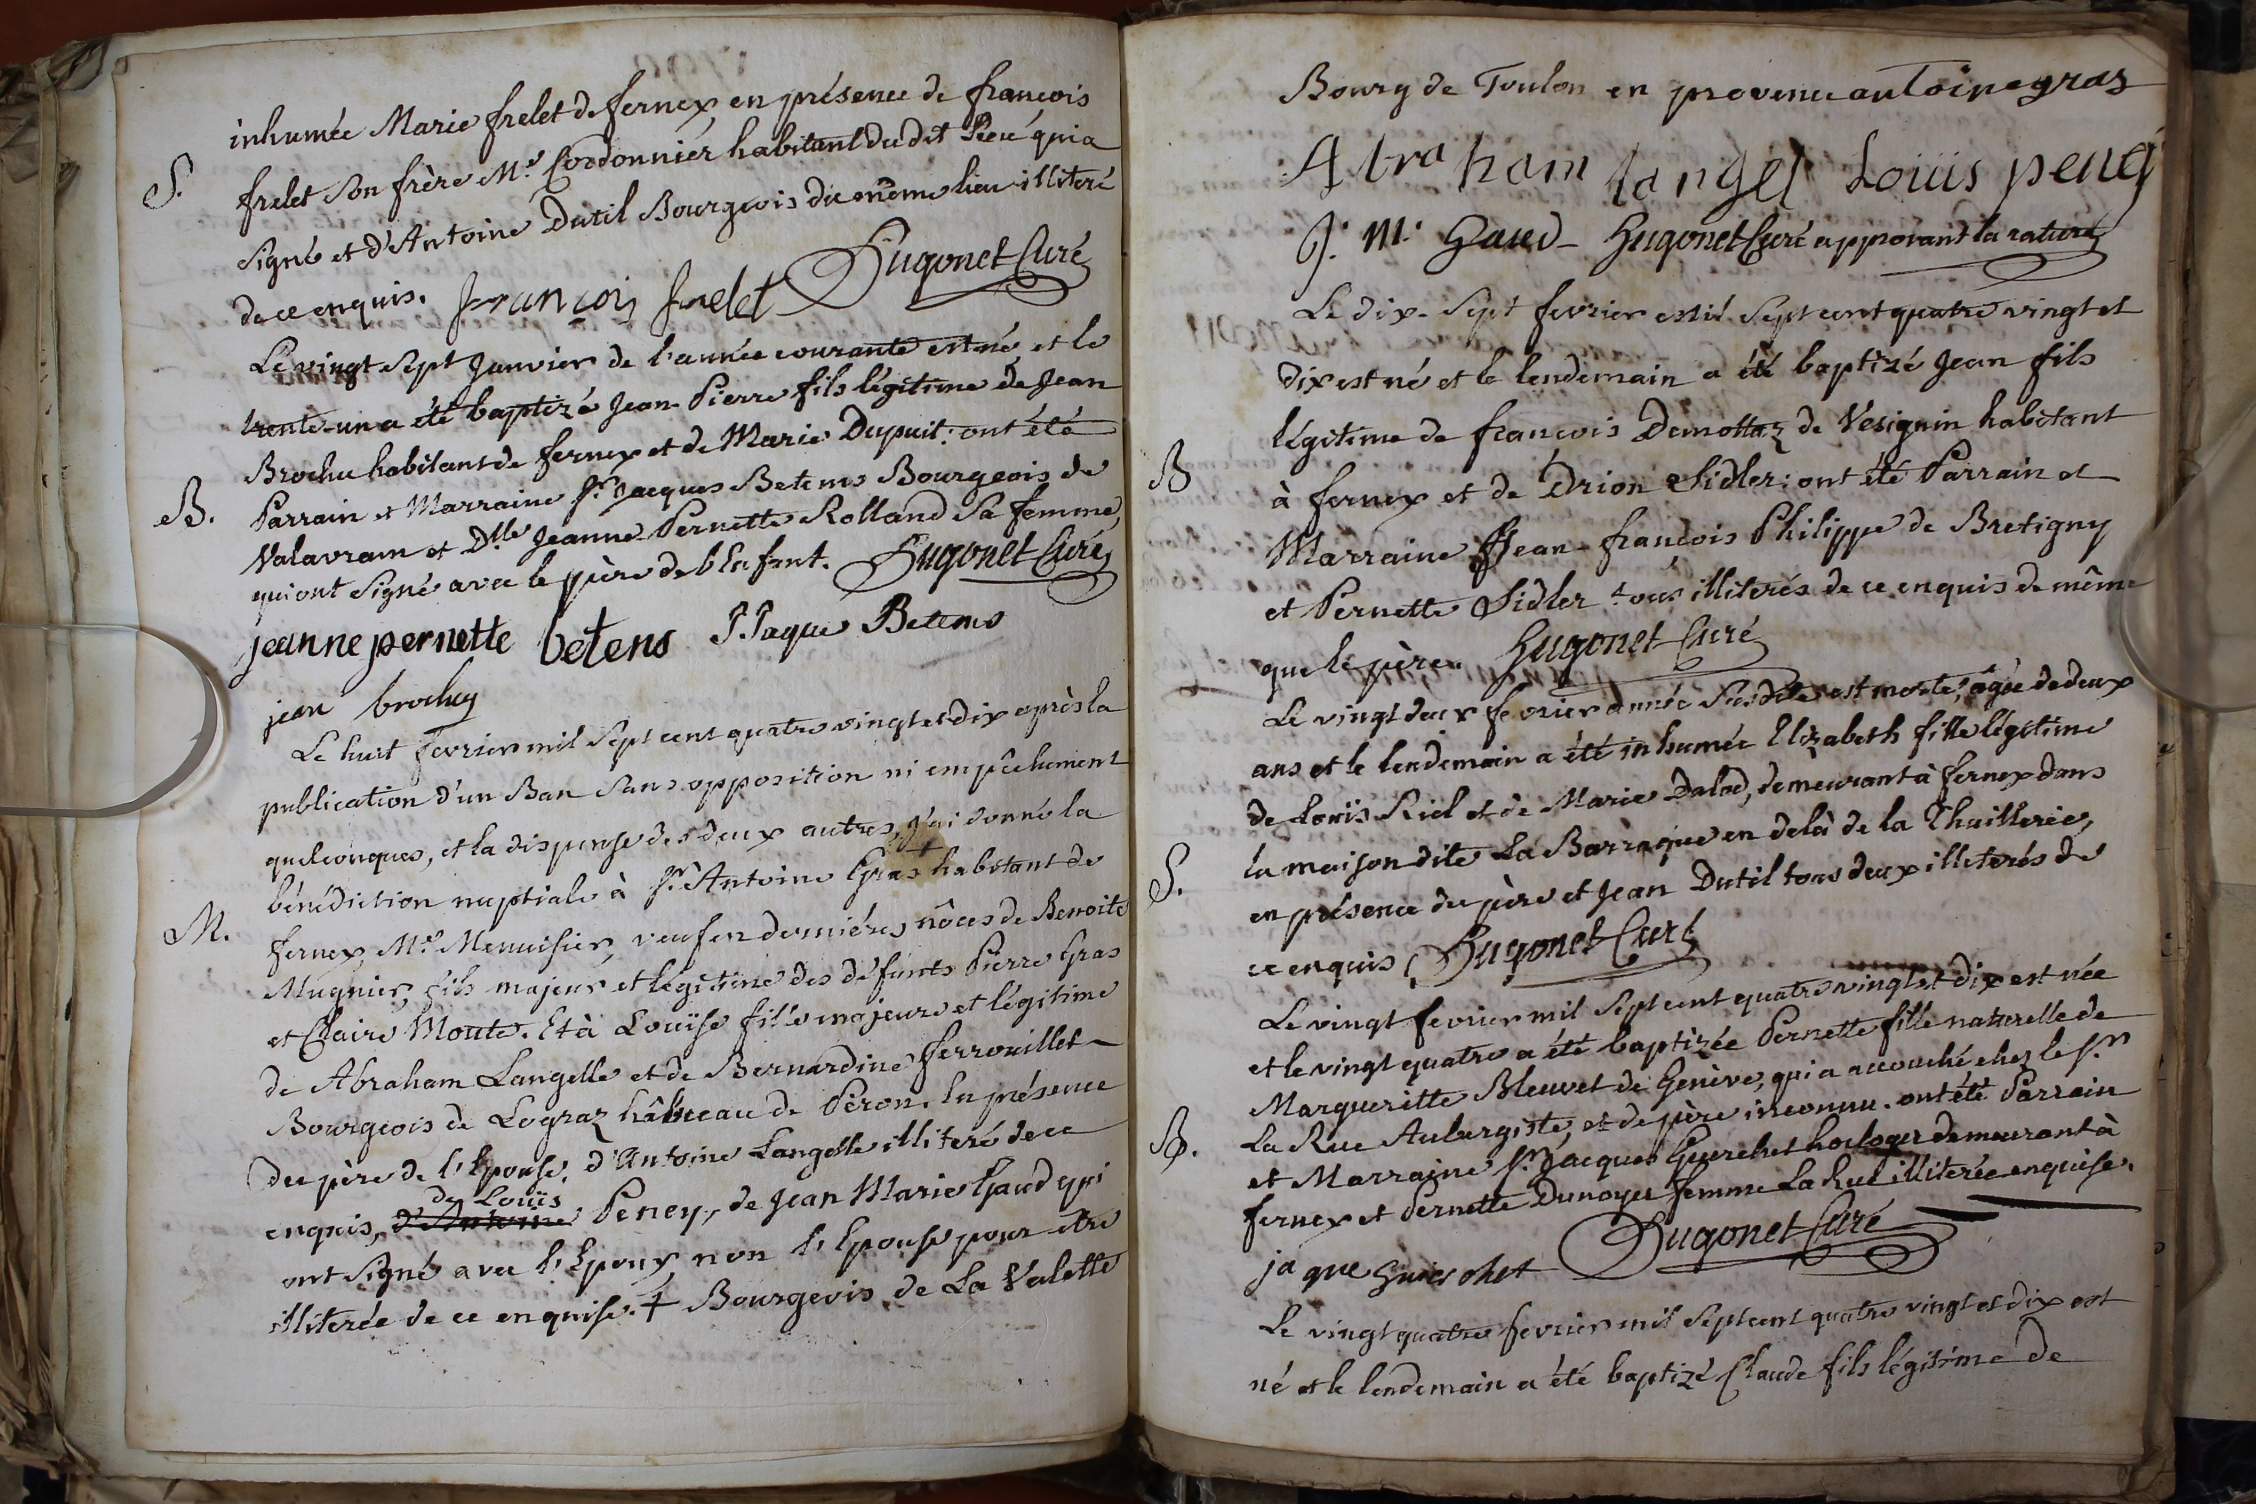 inhumée Marie frelet de fernex, en présence de françois
S. frelet Son frère M.e Cordonnier habitant du dit Lieu qui a
Signé et d'Antoine Dutil Bourgeois du même lieu illiteré
de ce enquis. françois frelet Hugonet Curé
Le vingt Sept Janvier de l'année courante est né et le
trente-un a été baptizé Jean-Pierre fils légitime de Jean
Brochu habitant de fernex et de Marie Dupuit: ont été
B. Parrain et Marraine Sr. Jacques Betems Bourgeois de
Valavram et Dlle Jeanne-Pernette Rolland Sa femme,
qui ont Signé avec le père de l'Enfant. Hugonet Curé
jeanne pernette betens J. Jaque Betems
jean brochu
Le huit fevrier mil Sept cent quatre vingt et dix après la
publication d'un Ban Sans opposition ni empêchement
quelconques, et la dispense des deux autres, j'ai donné la
bénédiction nuptiale à Sr. Antoine Gras + habitant de
M. fernex, M.e Menuisier, veuf en dernières nôces de Benoite
Mugnier, fils majeur et légitime des défunts Pierre Gras
et Claire Moute. Et à Louïse fille majeure et légitime
de Abraham Langelle et de Bernardine ferrouillet
Bourgeois de Lograz hâmeau de Péron. En présence
du père de l'Epouse, d'Antoine Langelle illiteré de ce
de Louïs
enquis, d'Antoine Peney, de Jean Marie Gaud qui
ont Signé avec l'Epoux non l'Epouse pour etre
illiterée de ce enquise. + Bourgeois de La Valette
Bourg de Toulon en provence antoine gras
Abraham langel Louis peney
J. M. Gaud Hugonet Curé approuvant la rature
Le dix-Sept fevrier mil Sept cent quatre vingt et
dix est né et le lendemain a été baptizé Jean fils
légitime de françois Demottaz de Vesignin habitant
B à fernex et de Orion Sidler: ont été Parrain et
Marraine Jean-françois Philippe de Bretigny
et Pernette Sidler tous illiterés de ce enquis de même
que le père. Hugonet Curé
Le vingt deux fevrier année Susdite est morte, âgée de deux
ans et le lendemain a été inhumée Elizabeth fille légitime
de Louïs Riel et de Marie Dalod, demeurant à fernex dans
S. la maison dite La Barraque en delà de la Thuillerie,
en présence du père et Jean Dutil tous deux illiterés de
ce enquis, Hugonet Curé
Le vingt fevrier mil Sept cent quatre vingt et dix est née
et le vingt quatre a été baptizée Pernette fille naturelle de
Margueritte Bleuvet de Genève, qui a accouché chez le Sr.
B. La Rue Aubergiste, et de père inconnu. ont été Parrain
et Marraine Sr. Jacques Guerchet horloger demeurant à
fernex et Pernette Dunoyer femme La Rue illiterée enquise.
jaque guerchet Hugonet Curé
Le vingt quatre fevrier mil Sept cent quatre vingt et dix est
né et le lendemain a été baptizé Claude fils légitime de